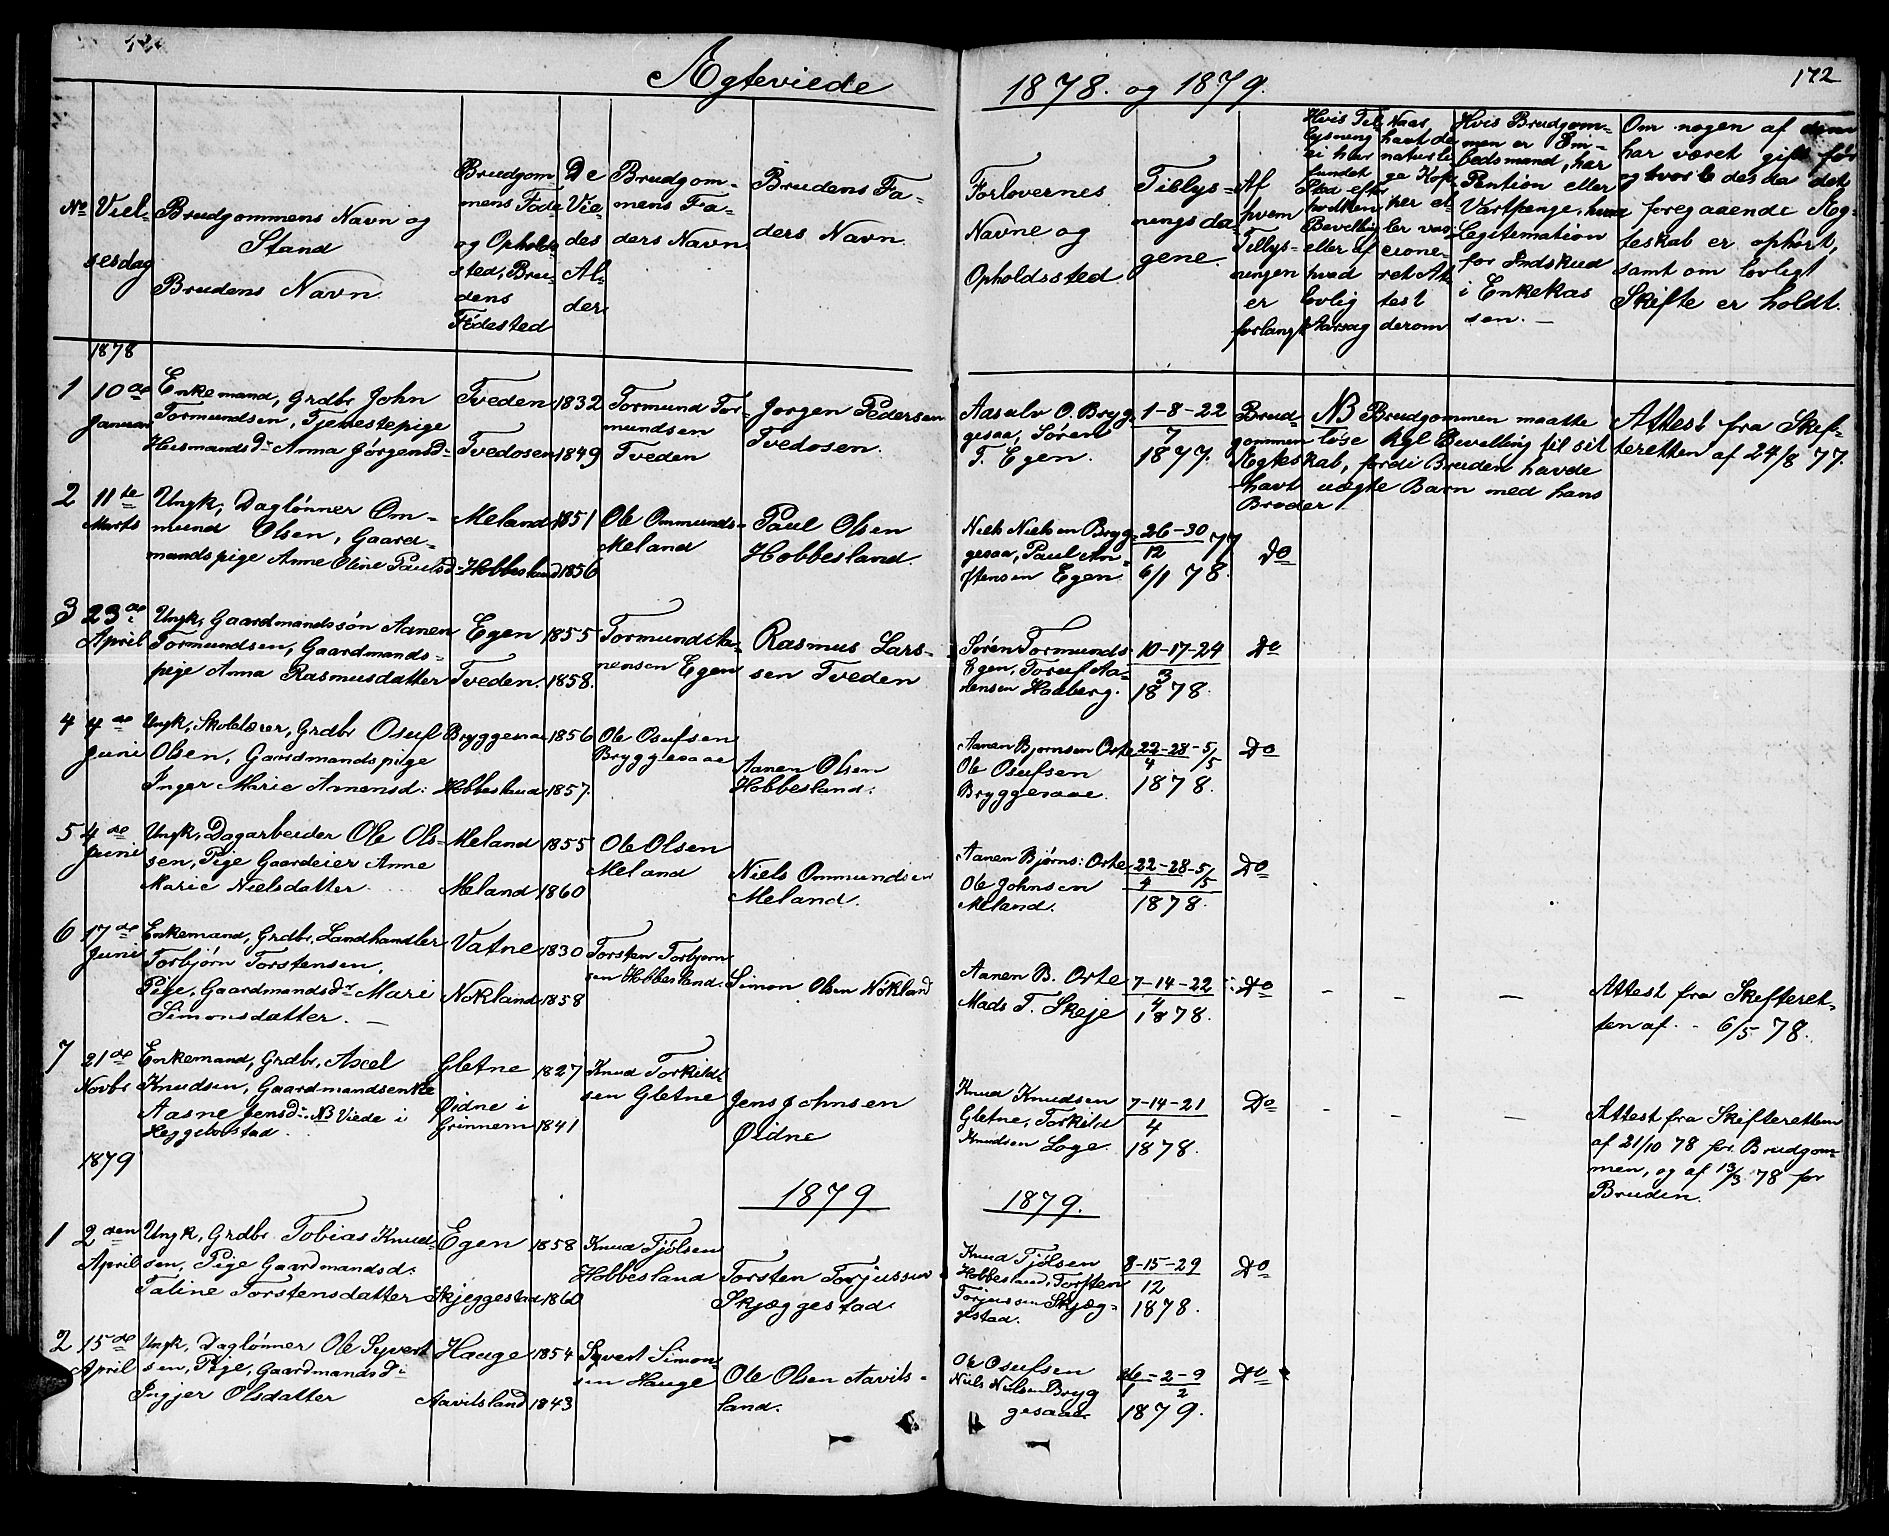 Ægteviede
1878. og 1879.
172
No
Viel-
sesdag
Brudgommens Navn og
Stand
Brudens Navn.
Brudgom
mens Føde
og Opholds
sted, Bru-
dens
Fødested
De
Vie-
des
Al-
der
Brudgom-
mens Fa-
ders Navn
Brudens Fa-
ders Navn.
Forlovernes
Navne og
Opholdssted.
Tillys-
nings da-
gene.
Af
hvem
Tillys-
ningen
er
forlangt
Hvis Til-
lysning
ei har
fundet
Sted efter
hvilken
Bevelling
eller af
hvad
lovlig
Aarsag
Naar
havt de
naturli-
ge Kop-
per el-
ler vac-
cione-
ret At-
test
derom
Hvis Brudgom-
men er Em-
bedsmand, har
Pention eller
Vartpenge, hvad
Legitimation
for Indskud
i Enkekas
sen. —
Om nogen af dem
har været gift før
og hvorledes da det
foregaaende Æg-
teskab er ophørt,
samt om lovligt
Skifte er holdt.
1878
1 10de
Januar
Enkemand, Grdbr John
Tormundsen, Tjenestepige
Husmandsdr Anna Jørgensd-
Tveden 1832
Tvedosen 1849
Tormund Tor-
mundsen
Tveden
Jørgen Pedersen
Tvedosen.
Aasulv O. Bryg-
gesaa, Søren
T. Egen.
1-8-22
7
1877.
Brud-
gommen
NB Brudgommen maatte
løse Kgl Bevelling til sit
Ægteskab, fordi Bruden havde
havt uægte Barn med hans
Broder.
Attest fra Skef-
teretten af 24/8 77.
2 11te
Marts
Ungk, Daglønner Om-
mund Olsen, Gaard-
mandspige Anne Oline Paulsd-
Meland 1851
Hobbesland 1856
Ole Ommunds-
Meland
Paul Olsen
Hobbesland.
Niels Nielsen Bryg-
gesaa, Paul An-
ftensen Egen.
26-30 77
12
6/1 78.
Do
3 23de
April
Ungk, Gaardmandssøn Aanen
Tormundsen, Gaardmands-
pige Anna Rasmusdatter
Egen 1855
Tveden. 1858.
Tormund Aa-
nensen Egen
Rasmus Lars-
sen Tveden
Søren Tormunds-
Egen, Toruf Aa-
nensen Haaberg.
10-17-24
3
1878.
Do
4 4de
Juni
Ungk, Skolelærer, Grdbr Osuf
Olsen, Gaardmandspige
Inger Marie Aanensd:
Bryggesaa 1856
Hobbesland 1857.
Ole Osufsen
Bryggesaae
Aanen Olsen
Hobbesland.
Aanen Bjørnsen Orte
Ole Osufsen
Bryggesaae.
22-28-5/5
4
1878.
Do
5 4de
Juni
Ungk, Dagarbeider Ole Ols-
sen, Pige Gaardeier Anne
Marie Nielsdatter
Meland 1855
Meland 1860
Ole Olsen
Meland
Niels Ommundsen
Meland.
Aanen Bjørns: Orte
Ole Johnsen
Meland.
22-28-5/5
4
1878.
Do
6 17de
Juni
Enkemand, Grdbr, Landhandler
Torbjørn Torstensen,
Pige, Gaardmandsdr Mari
Simonsdatter. —
Vatne 1830
Nøkland 1858
Torsten Torbjørn
sen Hobbesland.
Simon Olsen Nøkland
Aanen B. Orte
Mads T. Skeje
7-14-22
4
1878.
Do - - —
Attest fra Skefteret-
ten af. - 6/5 78.
7 21de
Novbr
Enkemand, Grdbr, Axel
Knudsen, Gaardmandsenke
Aasne Jensd: NB Viede i
Heggebostad.
Gletne 1827
Øidne i
Grinnem 1841
Knud Torkilds-
sen Gletne
Jens Johnsen
Øidne
Knud Knudsen
Gletne, Torkild
Knudsen Loge.
7-14-21
4
1878.
Do - - —
Attest fra Skefteretten
af 21/10 78 for Brudgom-
men, og af 13/3 78 for
Bruden.
1879
1879
1879.
1 2den
April
Ungk, Grdbr Tobias Knud-
sen, Pige Gaardmandsd:
Taline Torstensdatter
Egen 1858
Skjeggestad 1860
Knud Tjølsen
Hobbesland
Torsten Torjussen
Skjæggestad.
Knud Tjølsen
Hobbesland, Torsten
Torjussen Skjæg-
gestad.
8-15-29
12
1878.
Do
2 15de
April
Ungk, Daglønner Ole Syvert
sen, Pige, Gaardmandsd:
Ingjer Olsdatter
Hauge 1854
Aavitsland 1843
Syvert Simon-
sen Hauge
Ole Olsen Aavits-
land.
Ole Osufsen
Niels Nielsen Bryg
gesaae
26-2-9
1 2
1879.
Do